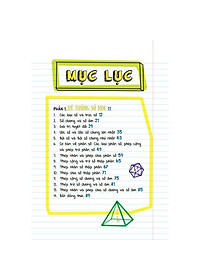 MỤC LỤC
PHẦN 1: HỆ THỐNG SỐ HỌC 11
1. Các loại số và trục số 12
2. Số dương và số âm 21
3. Giá trị tuyệt đối 29
4. Ước số và ước số chung lớn nhất 35
5. Bội số và bội số chung nhỏ nhất 43
6. Cơ bản về phân số: Các loại phân số, phép cộng
và phép trừ phân số 49
7. Phép nhân và phép chia phân số 59
8. Phép cộng và trừ số thập phân 65
9. Phép nhân số thập phân 67
10. Phép chia số thập phân 71
11. Phép cộng số dương và số âm 75
12. Phép trừ số dương và số âm 81
13. Phép nhân và phép chia số dương và số âm 85
14. Bất đẳng thức 89